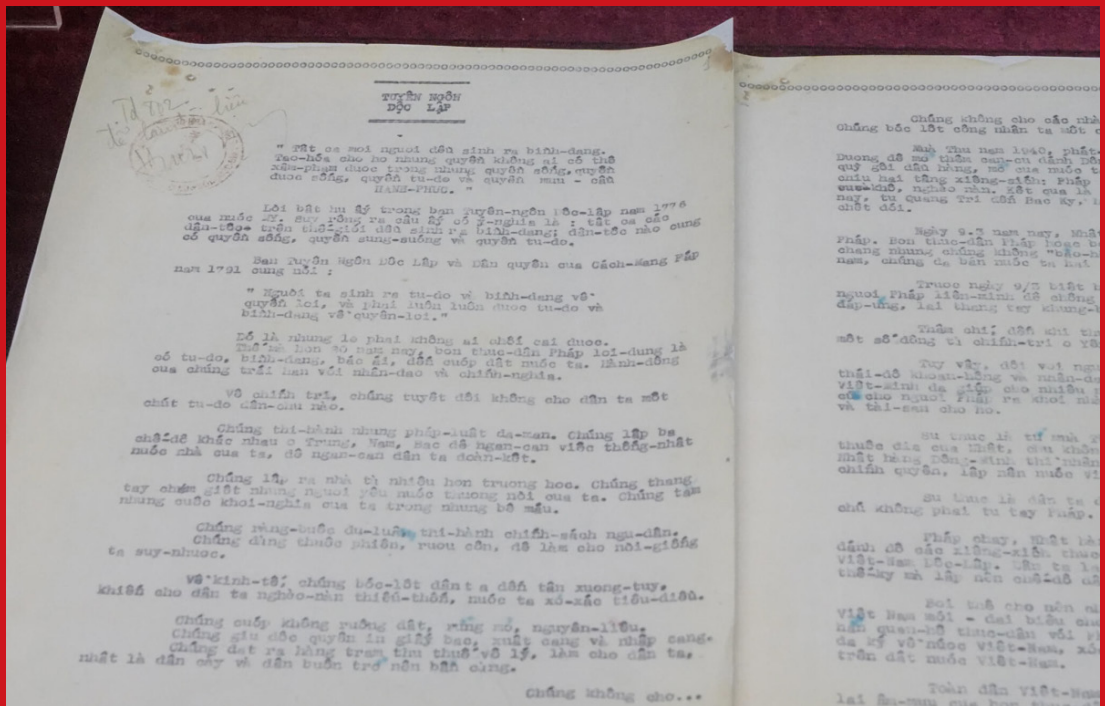 TUYÊN NGÔN
ĐỘC LẬP
" Tất ca moi nguoi dêu sinh ra binh-dang.
Tao-hóa cho ho nhung quyên không ai có thê
xâm-pham duoc trong nhung quyên sống, quyên
duoc sống, quyên tu-do và quyên mưu - câu
HANH-PHUC. "
Lòi bât hu ấy trong ban Tuyên-ngôn Dôc-Lâp năm 1776
cua nuóc Mỹ. Suy rông ra câu ấy có ý-nghia là : tât ca các
dân-tôc trên thê-giói dêu sinh ra binh-dang; dân-tôc nào cung
có quyên sống, quyên sung-suóng và quyên tu-do.
Ban Tuyên Ngôn Dôc Lâp và Dân quyên cua Cách-Mang Pháp
nam 1791 cung nói :
" Nguòi ta sinh ra tu-do và binh-dang vê
quyên loi, và phai luôn luôn duoc tu-do và
binh-dang vê quyên-loi."
Dó là nhung le phai không ai chôi cai duoc.
Thê mà hon 80 nam nay, bon thuc-dân Pháp loi-dung lá
cò tu-do, binh-dang, bác ái, dên cuóp dât nuóc ta. Hành-dông
cua chúng trái han vói nhân-dao và chinh-nghia.
Vê chinh tri, chúng tuyêt dôi không cho dân ta môt
chút tu-do dân-chu nào.
Chúng thi-hành nhung pháp-luât da-man. Chúng lâp ba
chê-dô khác nhau o Trung, Nam, Bac dê ngan-can viêc thông-nhât
nuóc nhà cua ta, dê ngan-can dân ta doàn-kêt.
Chúng lâp ra nhà tù nhiêu hon truong hoc. Chúng thang
tay chém giêt nhung nguoi yêu nuóc thuong nòi cua ta. Chúng tam
nhung cuôc khoi-nghia cua ta trong nhung bê máu.
Chúng ràng-buôc du-luân, thi-hành chinh-sách ngu-dân.
Chúng dùng thuôc phiên, ruou côn, dê làm cho nòi-giông
ta suy-nhuoc.
Vê kinh-tê, chúng bóc-lôt dân ta dên tân xuong-tuy,
khiên cho dân ta nghèo-nàn thiêu-thôn, nuóc ta xo-xác tiêu-diêu.
Chúng cuóp không ruông dât, rùng mo, nguyên-liêu.
Chúng giu dôc quyên in giây bac, xuât cang và nhâp cang.
Chúng dat ra hàng tram thu thuê vô lý, làm cho dân ta,
nhât là dân cày và dân buôn tro nên bân cùng.
Chúng không cho...
Chúng không cho các nhà
Chúng bóc lôt công nhân ta môt
Mùa Thu nam 1940, phát-
Duong dê mo thêm can-cu dánh
quỳ gôi dâu hàng, mo cua nuóc
chiu hai tâng xiêng-xich: Pháp
khô, nghèo nàn. Kêt qua là
nay, tu Quang Tri dên Bac Ky,
chêt dói.
Ngày 9.3 nam nay, Nhât
Pháp. Bon thuc-dân Pháp hoac
chang nhung chúng không "bao-
nam, chúng da bán nuóc ta hai
Truoc ngày 9/3 biêt
nguoi Pháp liên-minh dê chông
dáp-ung, lai thang tay khung-
Thâm chi, dên khi
môt sô dông tù chinh-tri o Yên
Tuy vây, dôi voi
thái-dô khoan-hông và nhân-
Viêt-Minh da giúp cho nhiêu
cuu cho nguoi Pháp ra khoi nhà
và tài-san cho ho.
Su thuc là tu mùa
thuôc dia cua Nhât, chu không
Nhât hàng Dông-minh thi nhân
chinh quyên, lâp nên nuóc
Su thuc là dân ta
chú không phai tu tay Pháp.
Pháp chay, Nhât hàng
dánh dô các xiêng-xich thuc
Viêt-Nam Dôc-Lâp. Dân ta
thê-ky mà lâp nên chê-dô
Boi thê cho nên
Viêt Nam moi - dai biêu cho
hân quan-hê thuc-dân vói
da ký vê nuóc Viêt-Nam,
trên dât nuóc Viêt-Nam.
Toàn dân Viêt-Nam
lai âm-muu cua bon